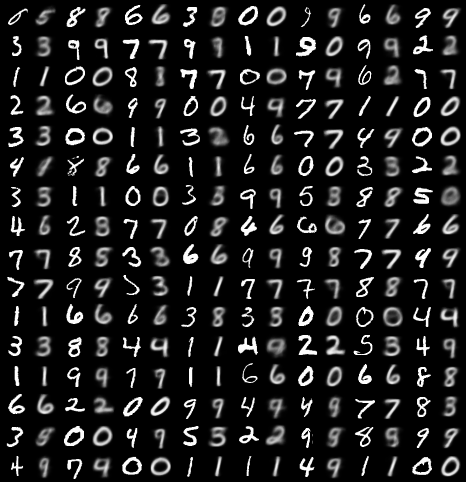 5 8 8 6 6 3 8 0 0 9 9 6 6 9 9
3 3 9 9 7 7 9 9 1 1 9 0 9 9 2 2
1 1 0 0 8 3 7 7 0 0 7 9 6 2 7 7
2 2 6 6 9 9 0 0 4 9 7 7 1 1 0 0
3 3 0 0 1 1 3 2 6 6 7 7 4 9 0 0
4 8 8 6 6 1 1 6 6 0 0 3 3 2 2
3 3 1 1 0 0 3 3 9 9 5 3 8 8 5 0
4 6 2 3 7 7 0 8 6 6 6 6 7 7 6 6
7 7 8 5 3 3 6 6 9 9 9 8 7 7 9 9
7 7 9 9 5 3 1 1 7 7 7 7 8 8 7 7
1 1 6 6 6 6 3 8 3 8 0 0 0 0 4 4
3 3 8 8 4 4 1 1 4 9 2 2 5 3 4 9
1 1 9 9 7 9 1 1 6 6 0 0 6 6 8 8
6 6 2 2 0 0 9 9 4 9 4 9 7 7 8 3
3 5 0 0 4 9 5 3 2 2 9 9 8 9 9 9
4 9 7 9 0 0 1 1 1 1 4 9 1 1 0 0